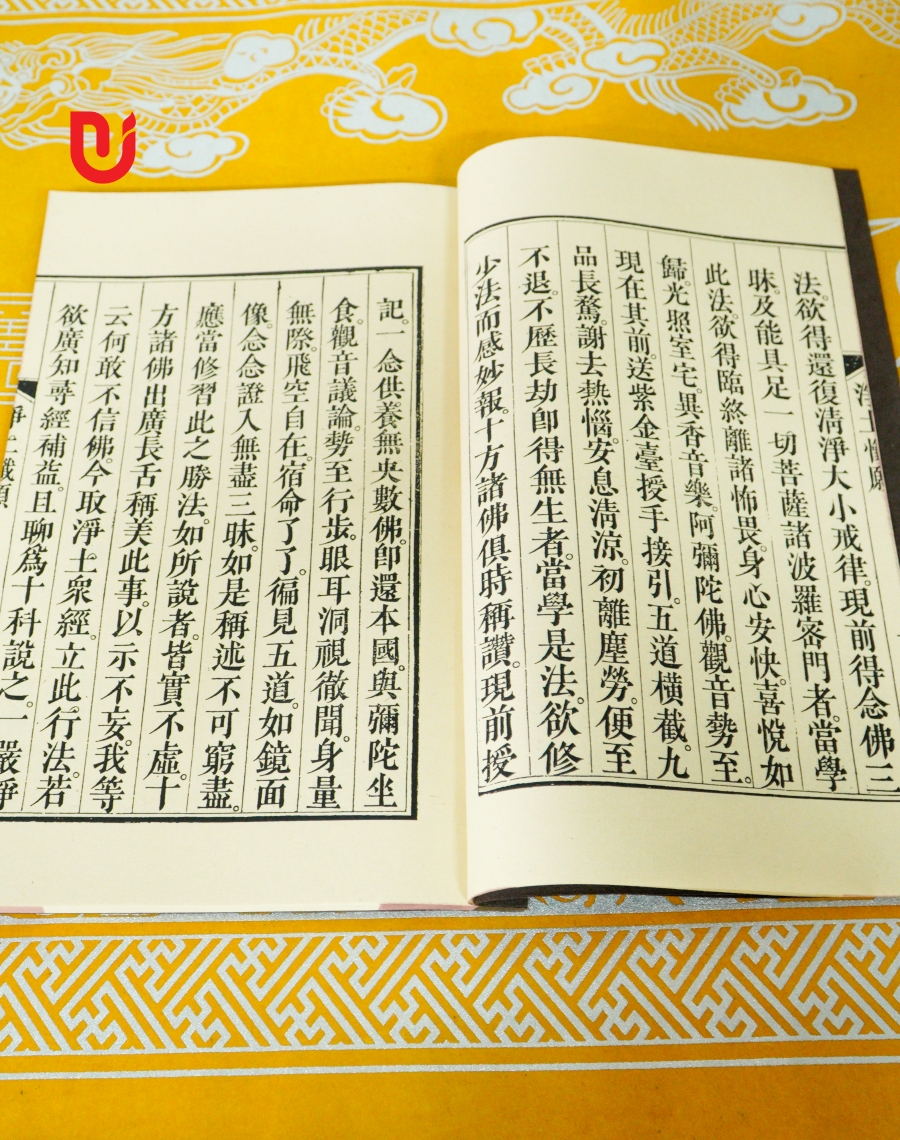 法。欲得還復清淨大小戒律。現前得念佛三
昧。及能具足一切菩薩諸波羅密門者。當學
此法。欲得臨終離諸怖畏。身心安快。喜悅如
歸。光照室宅。異香音樂。阿彌陀佛。觀音勢至。
現在其前。送紫金臺。授手接引。五道橫截。九
品長騖。謝去熱惱。安息清涼。初離塵勞。便至
不退。不歷長劫。卽得無生者。當學是法。欲修
少法而感妙報。十方諸佛。俱時稱讚。現前授
記。一念供養無央數佛。卽還本國。與彌陀坐
食。觀音議論。勢至行步。眼耳洞視徹聞。身量
無際。飛空自在。宿命了了。徧見五道。如鏡面
像。念念證入無盡三昧。如是稱述。不可窮盡。
應當修習此之勝法。如所說者。皆實不虛。十
方諸佛出廣長舌稱美此事。以示不妄。我等
云何敢不信佛。今取淨土衆經。立此行法。若
欲廣知尋經補益。且聊爲十科說之。一嚴淨